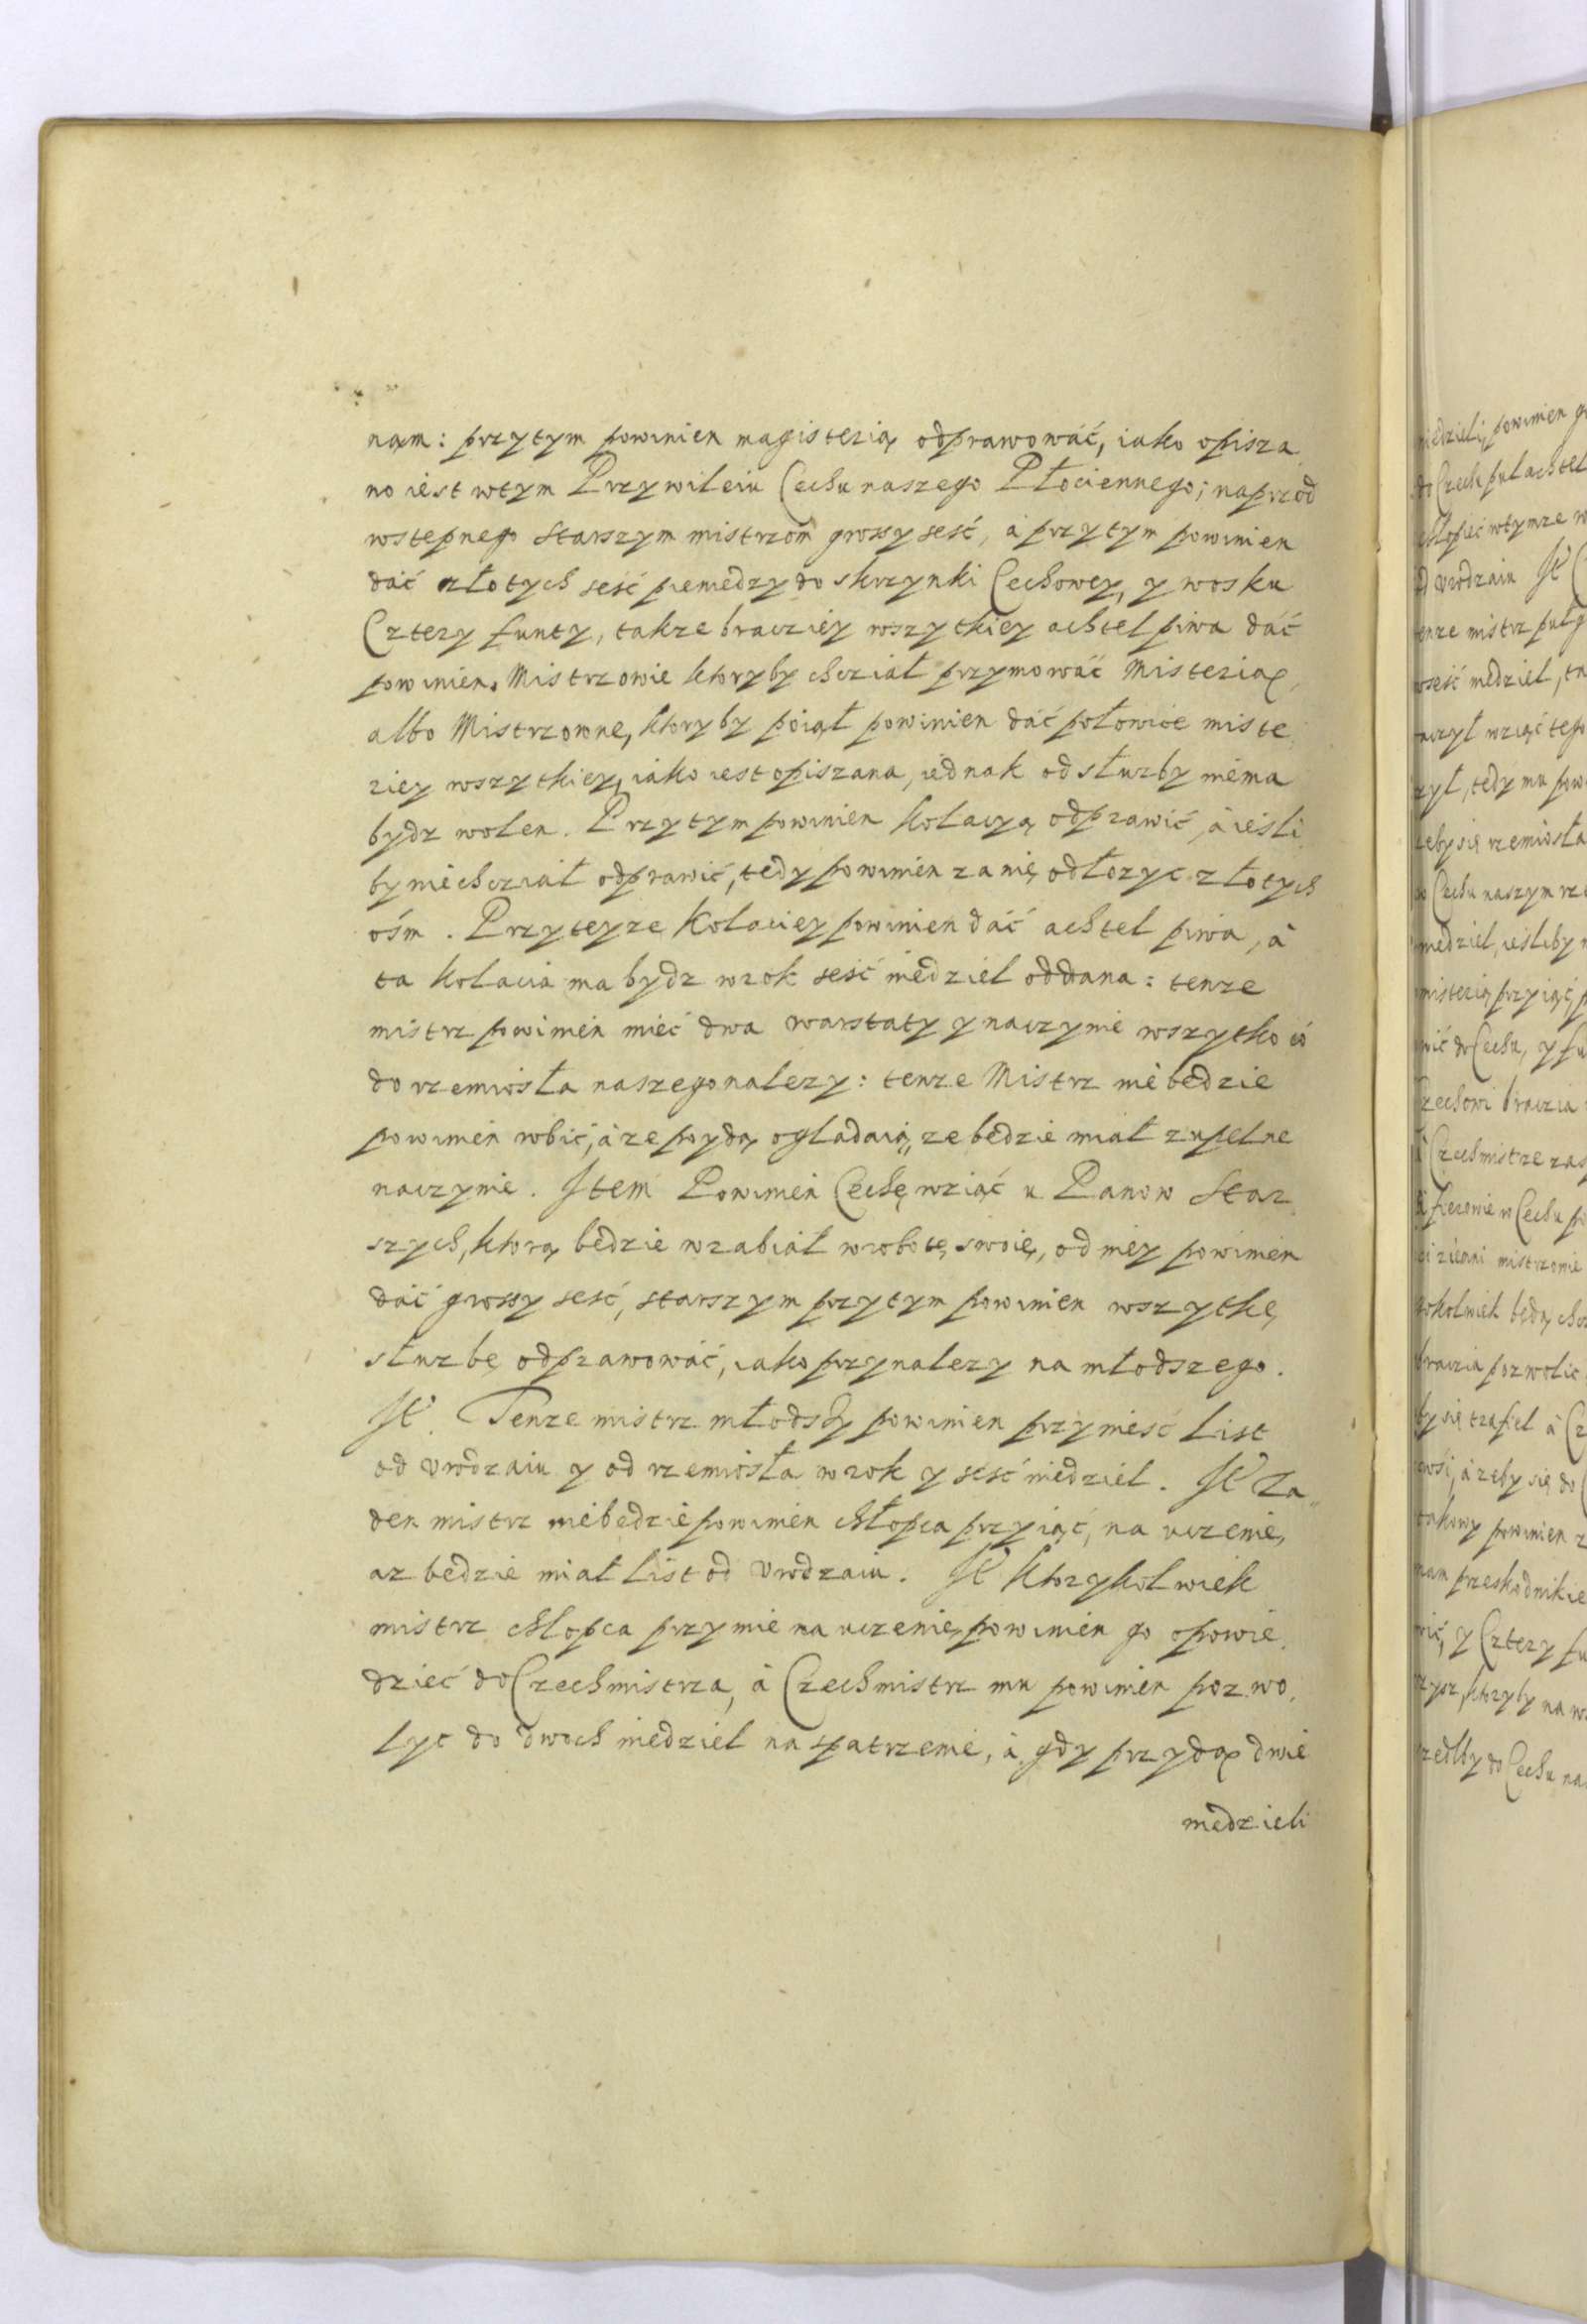 nąm: przytym powinien magisterią odprawowáć, iako opisza
no iest wtym Przywileiu Cechu naszego Płociennego; naprzod
wstępnego starszym mistrzom grossy sesć, à przytym powinien
dáć złotych sesć pieniedzy do skrzynki Cechowey, y wosku
Cztery funty, takze bracziey wszytkiey achtel piwa dáć
powinien. Mistrzowie ktoryby chcział przymowáć Misterią,
albo Mistrzowne, ktoryby poiął powinien dáć połowice miste
riey wszytkiey, iáko iest opiszana, iednak od słuzby niema
bydz wolen. Przytym powinien kolacyą odprawić, à iesli
by niechcział odprawić, tedy powinien zanię odłozyc złotych
ośm. Przyteyze Kolaciey powinien dáć achtel piwa, à
ta kolacia ma bydz wrok sesć niedziel oddana: tenze
mistrz powinien mieć dwa warstaty y naczynie wszytko có
do rzemiosła naszego nalezy: tenze Mistrz niebędzie
powinien robić, áze poydą ogladaią, ze bedzie miał zupełne
naczynie. Item Powinien Cechę wziąć u Panow Star
szych, ktorą bedzie wrabiał wrobotę swoię, od niey powinien
dáć grossy sesć, starszym przytym powinien wszytkę
słuzbę odprawowáć, iako przynalezy na młodszego.
It. Tenze mistrz młodszy powinien przyniesć List
od Vrodzaiu y od rzemiosła wrok y sesć niedziel. It Za
den mistrz niebedzie powinien chłopca przyiąć, na uczenie,
az bedzie miał List od Vrodzaiu. It Ktorykolwiek
mistrz chłopca przymie na uczenie, powinien go opowie
dzieć do Czechmistrza, à Czechmistrz mu powinien pozwo
lyc do dwoch niedziel na spatrzenie, à gdy przydą dwie
niedzieli